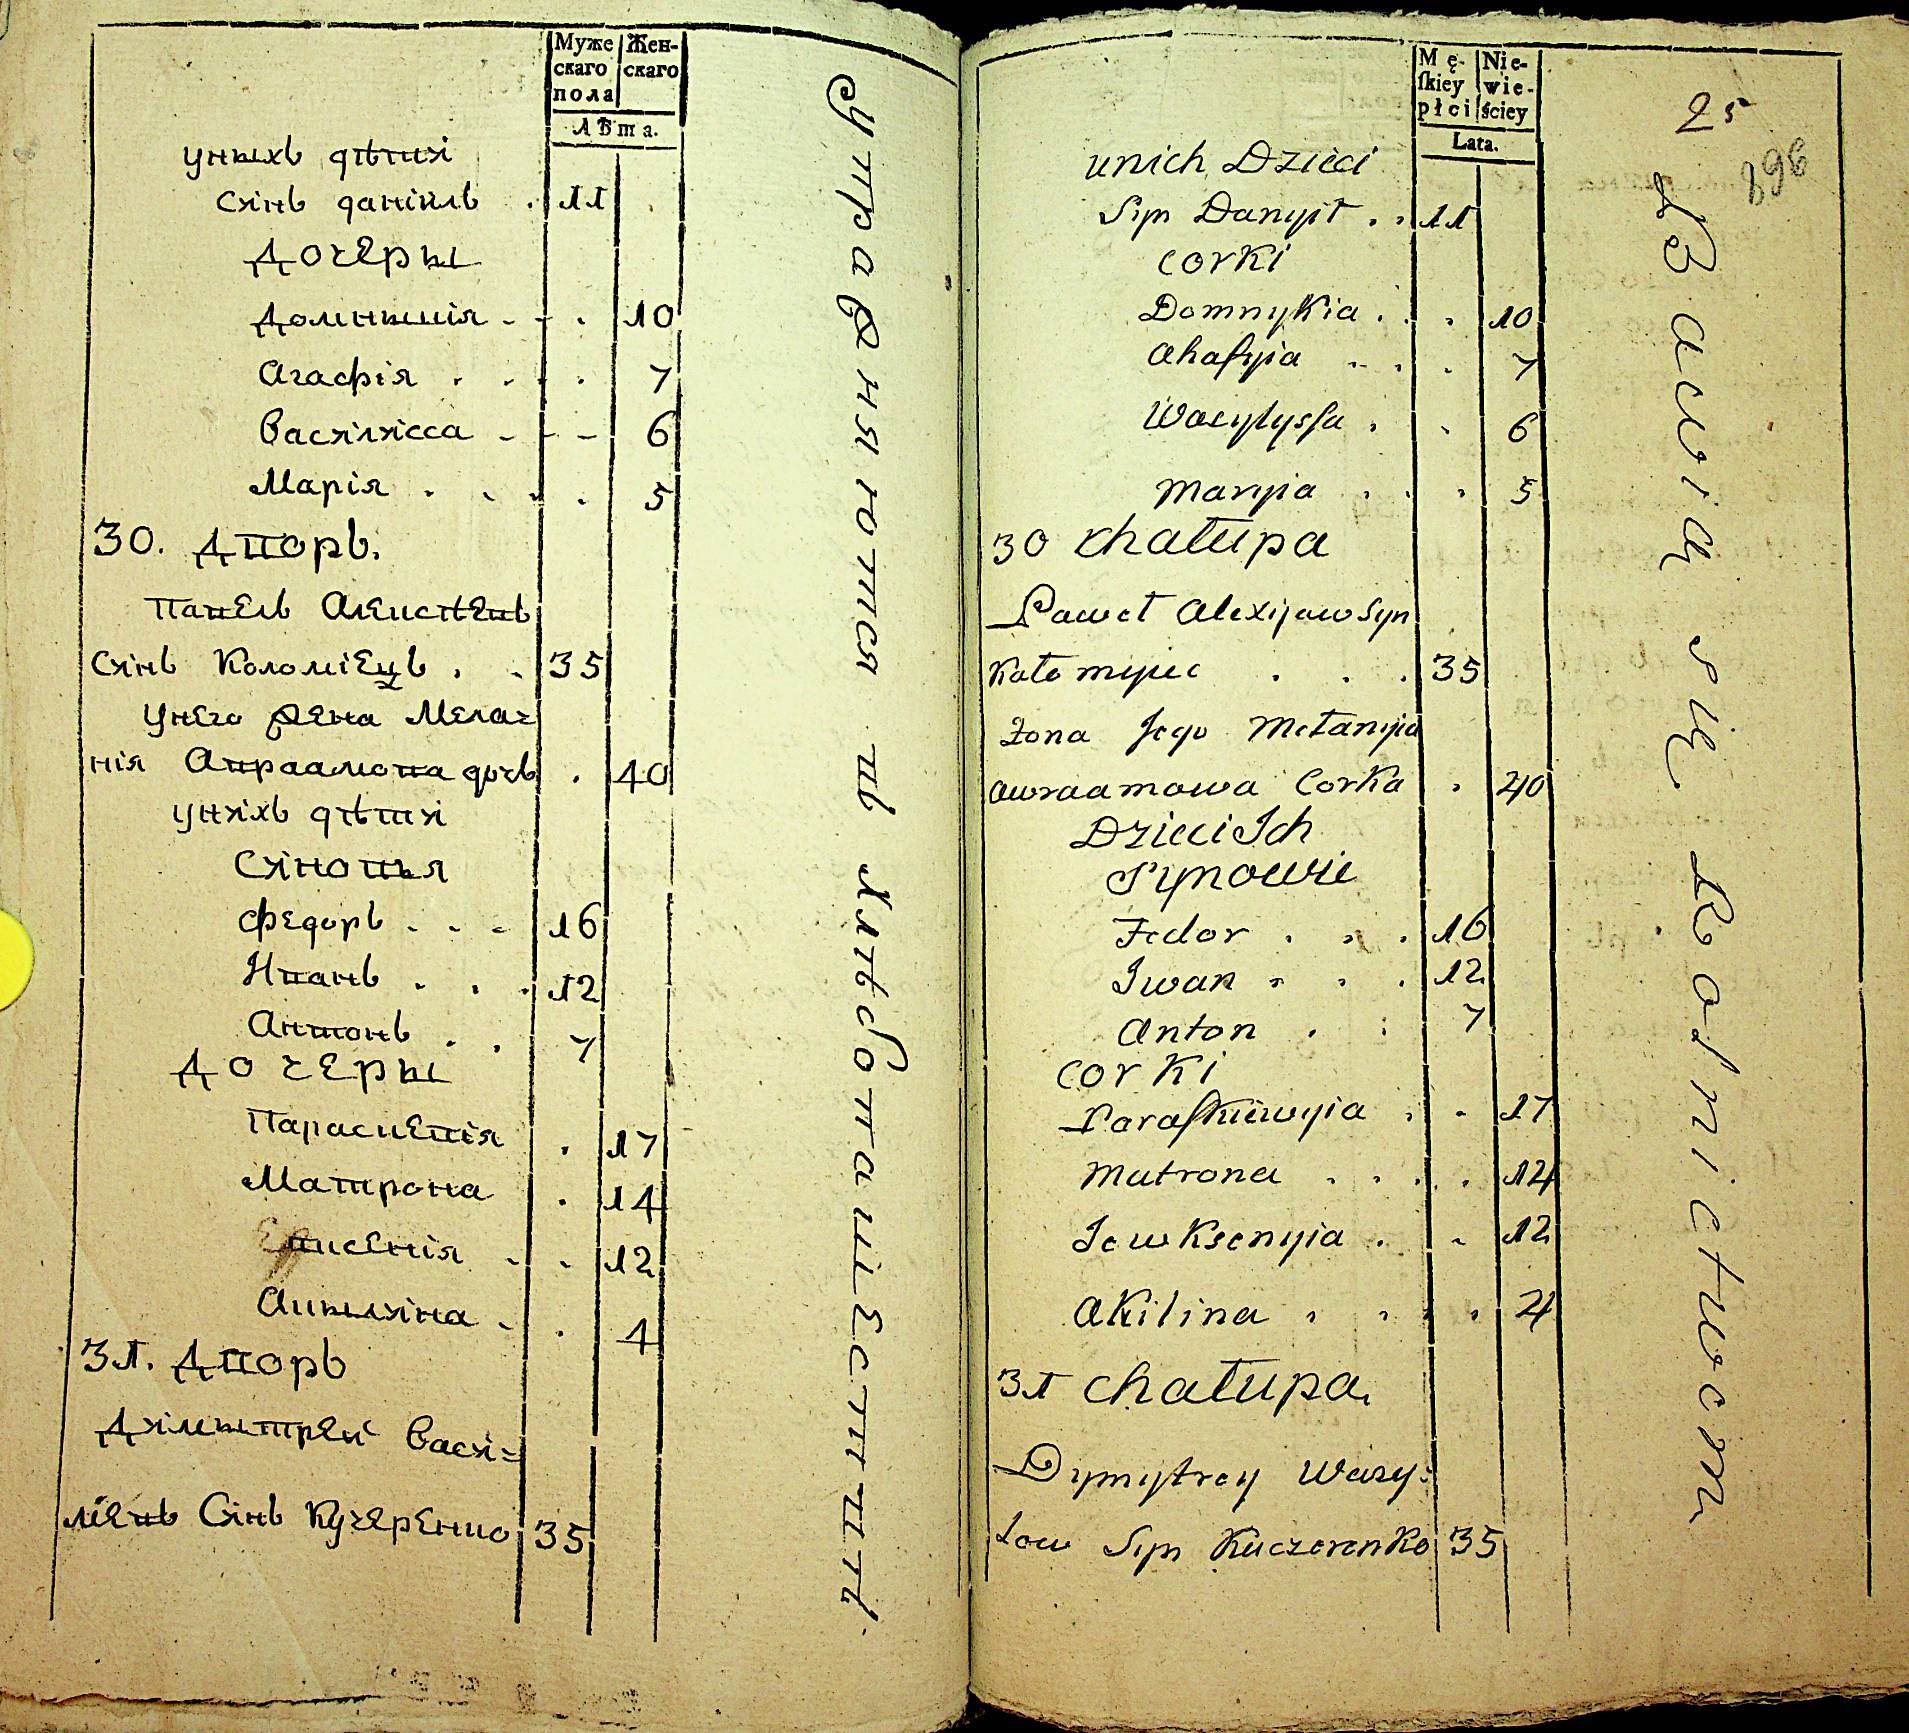 Муже
скаго
пола
Жен-
скаго
Лѣта.
унихъ дѣти
Синъ данѣилъ . 11
Дочеры
Домникія - - . 10
Агафія . . . . 7
Василисса - - - 6
Марія . . . . 5
30. Дворъ.
Павелъ Алексѣевъ
Синъ Коломіецъ . . 35
унего Жена Мела=
нія Авраамова дочъ . 40
унихъ дѣти
Синовья
Федоръ . . . 16
Иванъ . . . 12
Антонъ . . 7
Дочеры
Параскевія . 17
Матрона . 14
Евксенія . . 12
Акилина . . 4
31. Дворъ
Димитрей Васи=
лїевъ Синъ Кучеренко 35
упражняются въ хлѣбопашествѣ
Mę-
ſkiey
płci
Nie-
wie-
ściey
Lata.
25
396
unich Dzieci
Syn Danyił . . 11
Corki
Domnykia . . . 10
Ahafyia . . . 7
Wacylyssa . . 6
Maryia . . . 5
30 Chałupa
Paweł Alexijow Syn
Kołomyiec . . . 35
Żona Jego Mełanyia
Awraamowa Corka . 40
Dzieci Ich
Synowie
Fedor . . . 16
Iwan . . . 12
Anton . . 7
Corki
Paraskiewyia . . 17
Matrona . . . . 14
Jewksenyia . . 12
Akilina . . . . 4
31 Chałupa.
Dymytrey Wasy=
low Syn Kuczerenko 35
Bawią się Rolnictwem